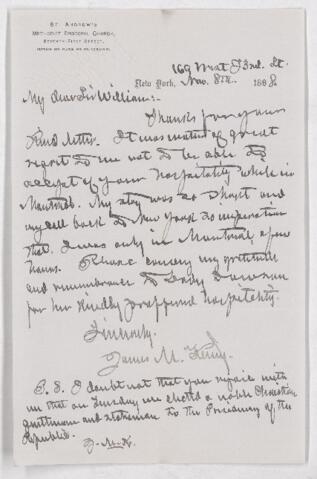 ST. ANDREW'S
METHODIST EPISCOPAL CHURCH,
SEVENTY-FIRST STREET,
169 West 73rd. St.
New York, Nov. 8th. 1888
My dear Sir William:-
Thanks for your
kind letter. It was matter of great
regret to me not to be able to
accept of your hospitality while in
Montreal. My stay was so short and
my call back to New York so imperative
that I was only in Montreal a few
hours. Please convey my gratitude
and remembrance to Lady Dawson
for her kindly proffered hospitality.
Sincerely,
James M. King.
P. S. I doubt not that you rejoice with
me that on Tuesday we elected a noble Christian
gentleman and statesman to the Presidency of the
Republic.
J. M. K.